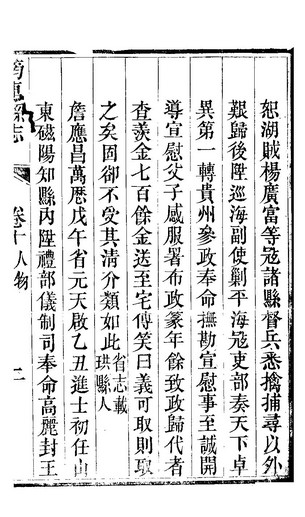 恕湖賊楊廣富等寇諸縣督兵悉擒捕尋以外
艱歸後陞巡海副使剿平海寇吏部奏天下卓
異第一轉貴州參政奉命撫勘宣慰事至誠開
導宣慰父子感服署布政篆年餘致政歸代者
查羨金七百餘金送至宅傳笑曰義可取則取
之矣固卻不受其清介類如此省志載珙縣人
詹應昌萬歷戊午省元天啟乙丑進士初任山
東磁陽知縣內陞禮部儀制司奉命高麗封王
筠連縣志 卷十人物 二